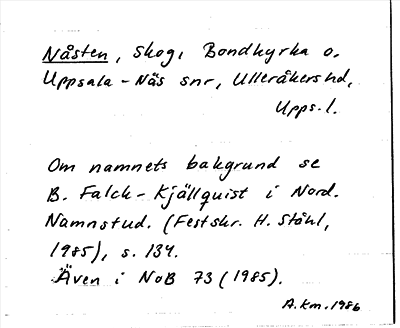 Nåsten, skog, Bondkyrka o.
Uppsala-Näs snr, Ulleråkers hd,
Upps. l.
Om namnets bakgrund se
B. Falck-Kjällquist i Nord.
Namnstud. (Festskr. H. Ståhl,
1985), s. 134.
Även i NoB 73 (1985).
A.Km. 1986